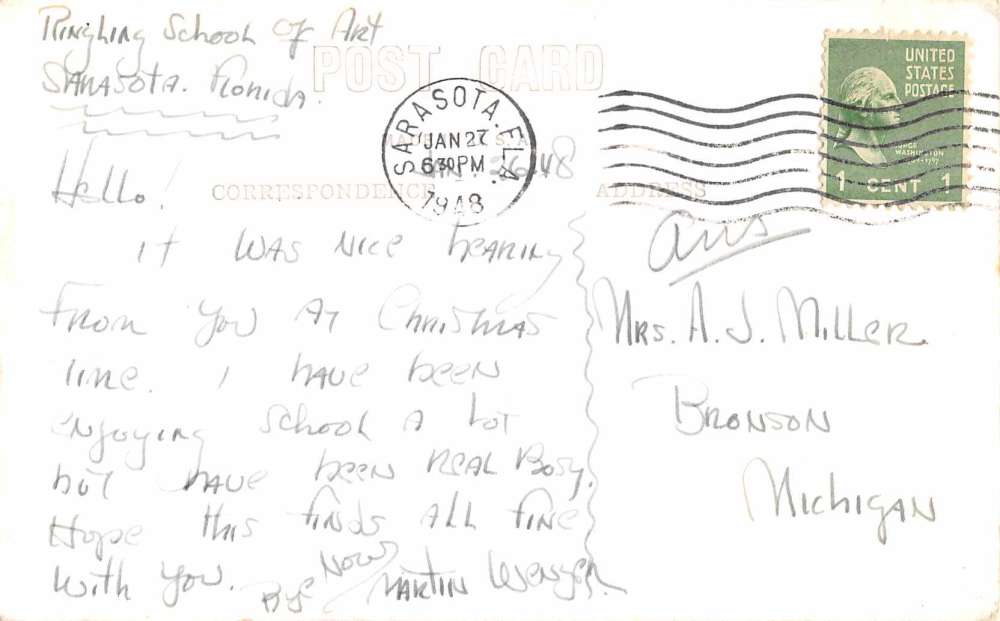 Ringling School of Art
Sarasota. Florida.
POST CARD
SARASOTA, FLA.
JAN 27
6 30 PM
1948
UNITED
STATES
POSTAGE
GEORGE
WASHINGTON
1 CENT 1
Hello!
CORRESPONDENCE
ADDRESS
It was nice hearing
from you at Christmas
time. I have been
enjoying school a lot
but have been real Bosy.
Hope this finds all fine
with you. Bye Now
Martin Wenger.
ans
Mrs. A. J. Miller.
Bronson
Michigan